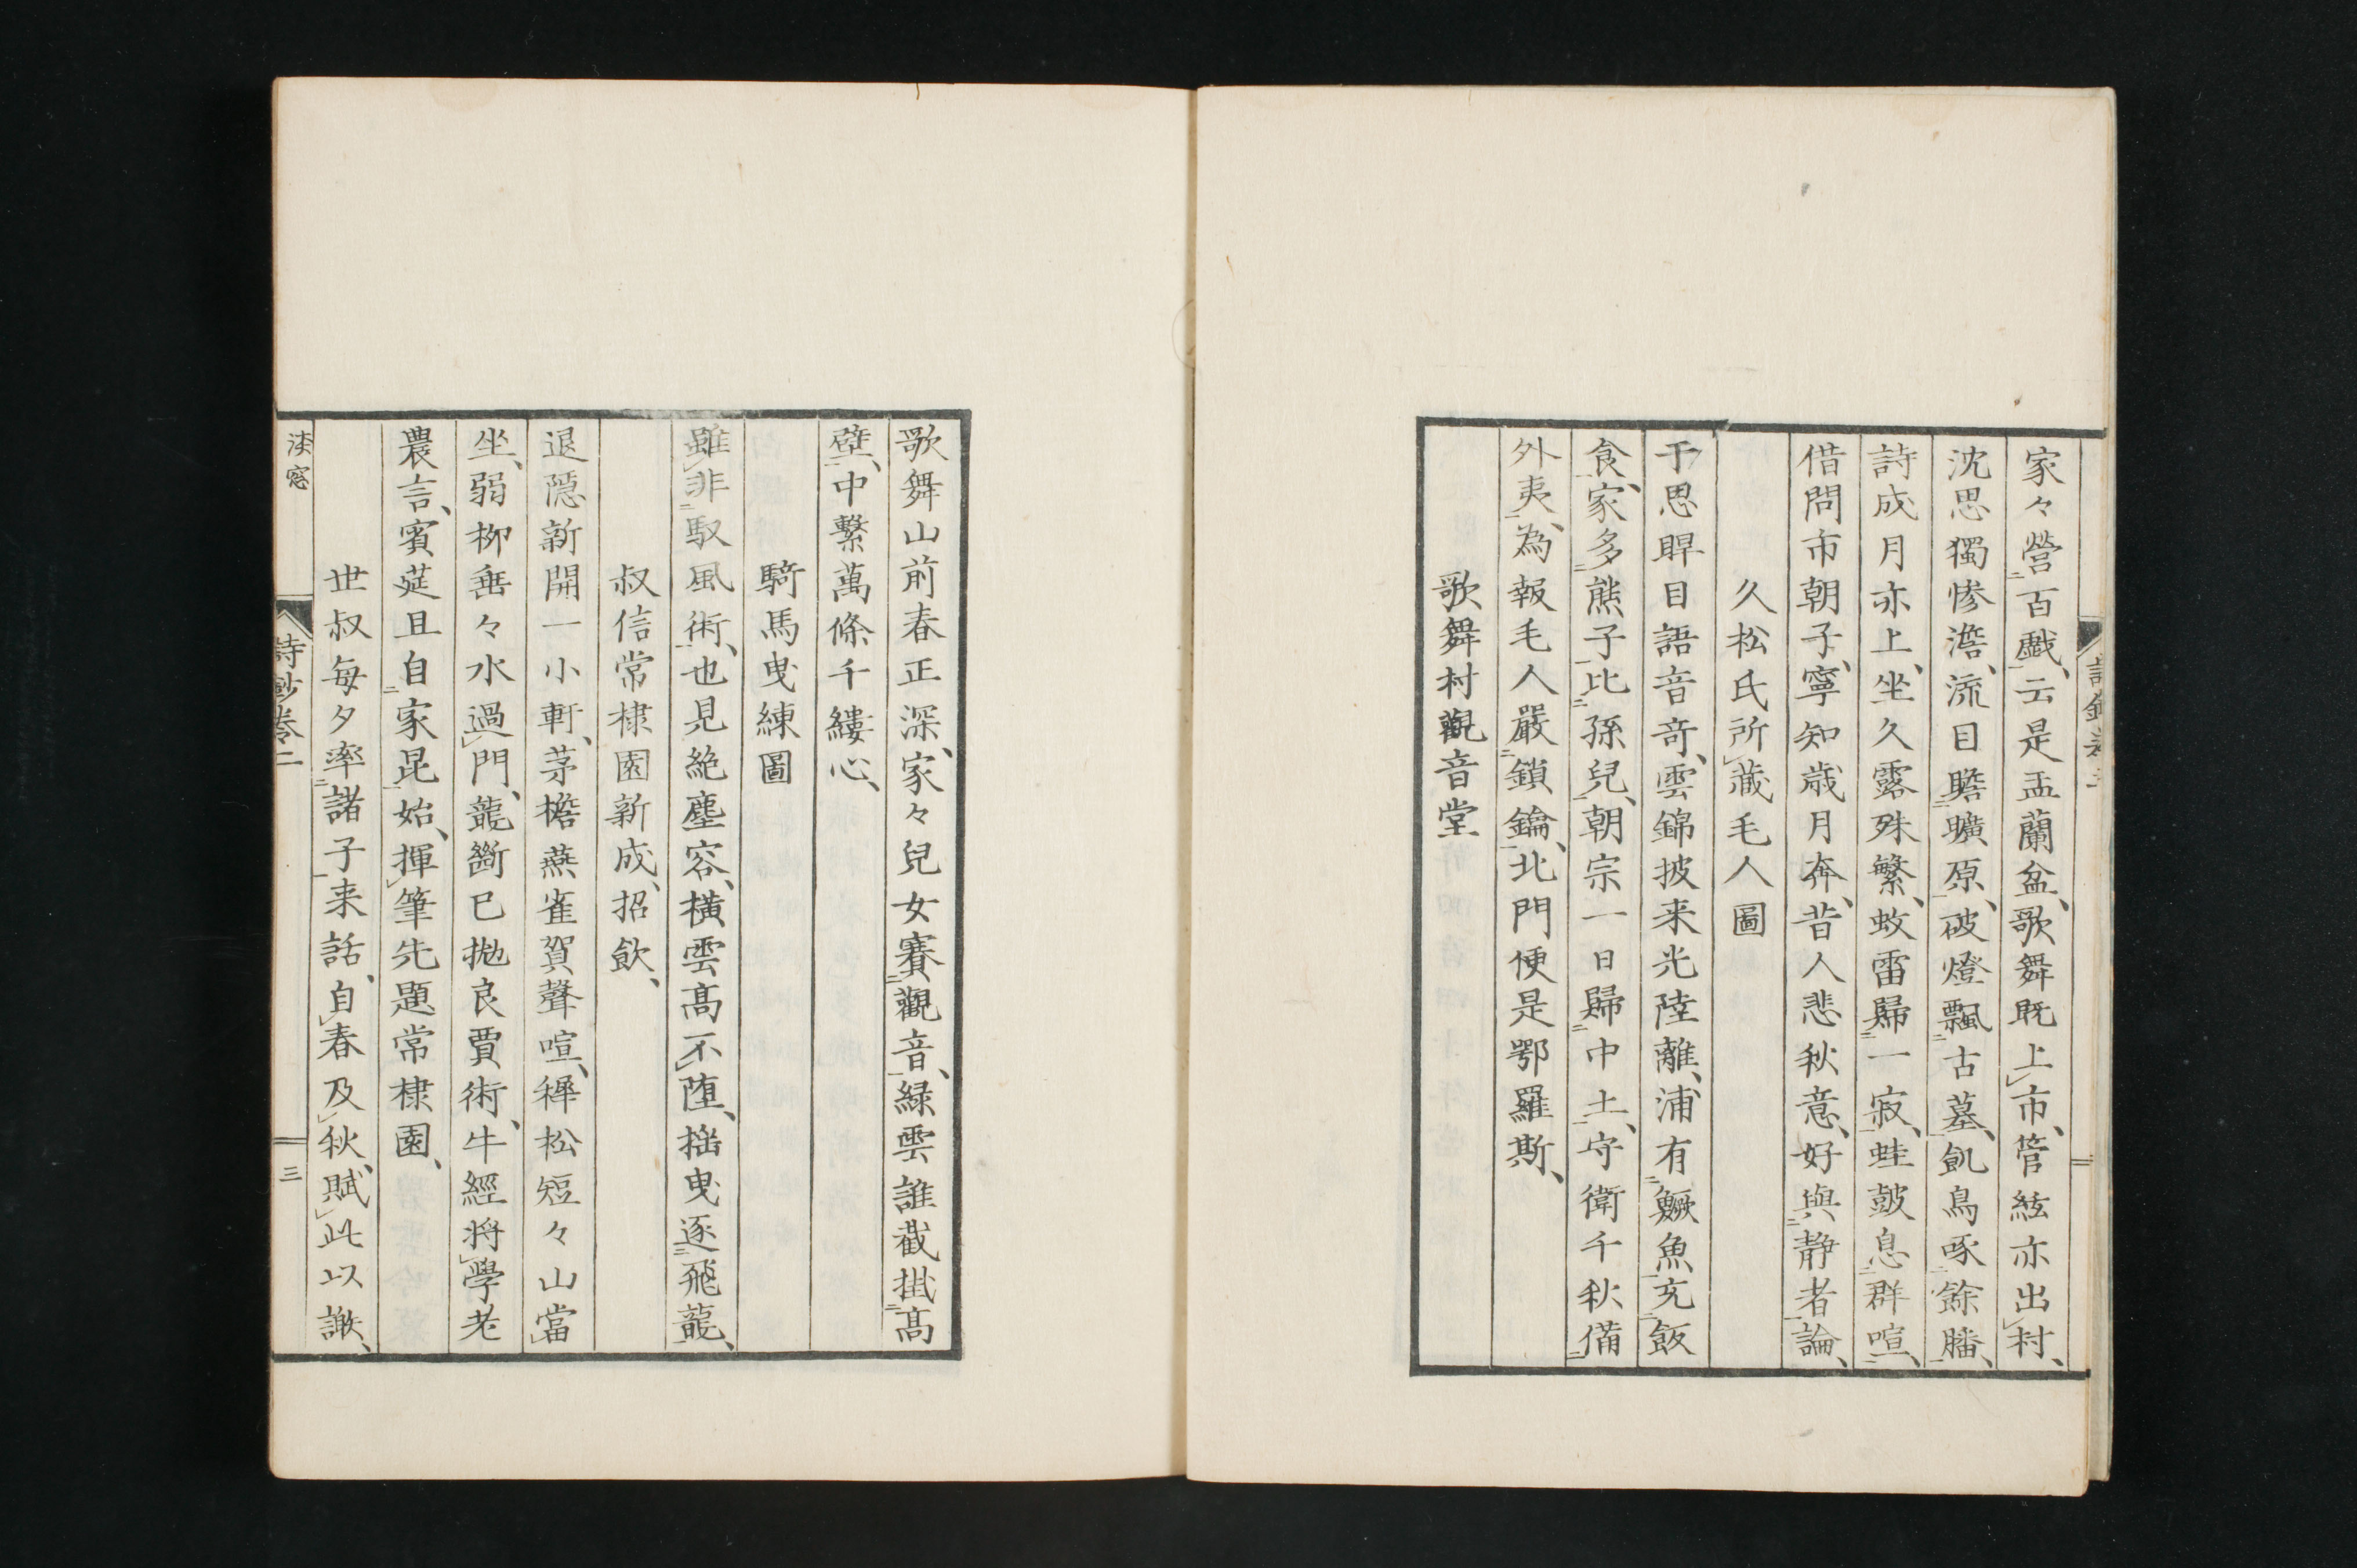 家々營百戲、云是盂蘭盆、歌舞既上市、管絃亦出村、
沈思獨慘澹、流目瞻曠原、破燈飄古墓、飢鳥啄餘膰、
詩成月亦上、坐久露殊繁、蚊雷歸一寂、蛙鼓息群喧、
借問市朝子、寧知歳月奔、昔人悲秋意、好與靜者論、
久松氏所藏毛人圖
于思睅目語音奇、雲錦披来光陸離、浦有鱖魚充飯
食、家多熊子比孫兒、朝宗一日歸中土、守衛千秋備
外夷、為報毛人嚴鎖鑰、北門便是鄂羅斯、
歌舞村觀音堂
歌舞山前春正深、家々兒女賽觀音、緑雲誰截掛高
壁、中繋萬條千縷心、
騎馬曳練圖
雖非馭風術、也見絶塵容、橫雲高不墮、揺曳逐飛龍、
叔信常棣園新成、招飲、
退隱新開一小軒、茅檐燕雀賀聲喧、穉松短々山當
坐、弱柳垂々水過門、龍斷已拋良賈術、牛經將學老
農言、賓莚且自家昆始、揮筆先題常棣園、
世叔每夕率諸子来話、自春及秋、賦此以謝、
詩鈔卷二
三